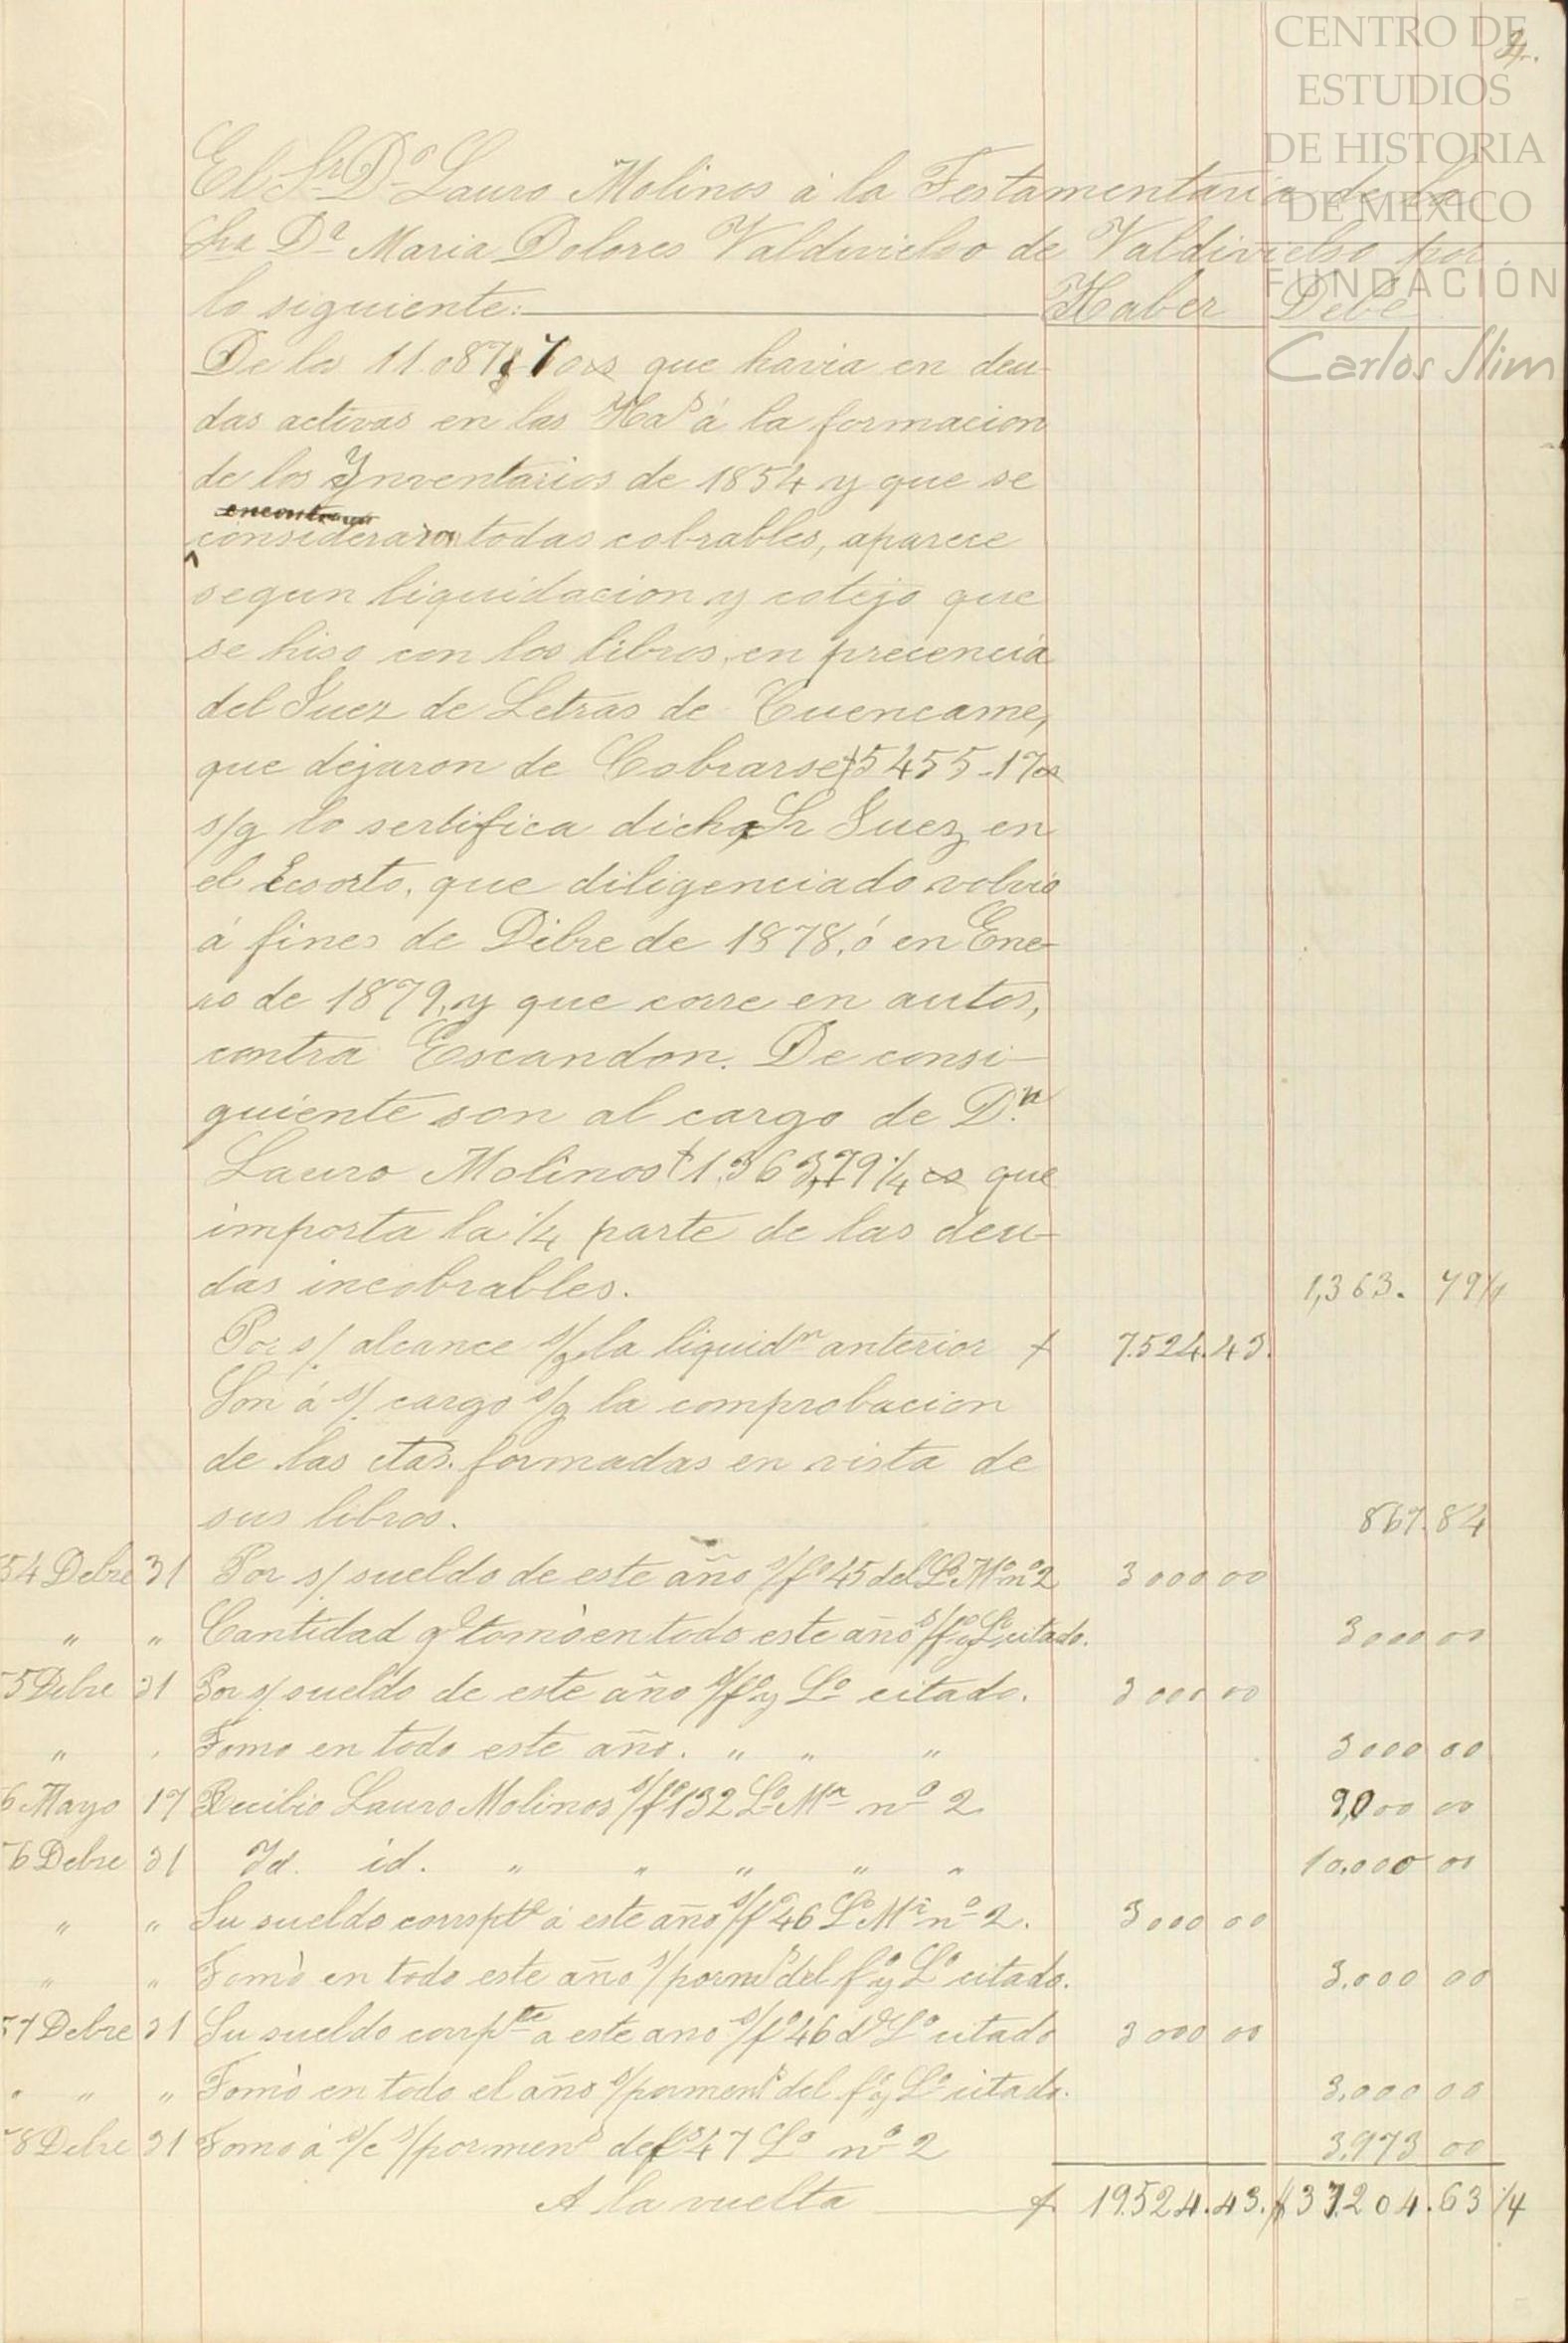 CENTRO DE
ESTUDIOS
DE HISTORIA
DE MÉXICO
FUNDACIÓN
Carlos Slim
El Sr. Dn. Lauro Molinos á la Testamentaria de la
Sra Da. Maria Dolores Valdivielso de Valdivielso por
lo siguiente: Haber Debe
De los 11.087, 70 cs que havia en deu-
das activas en las Has á la formacion
de los Ynventarios de 1854 y que se
encontraron
consideraron todas cobrables, aparece
segun liquidacion y cotejo que
se hiso con los libros, en precencia
del Juez de Letras de Cuencame,
que dejaron de Cobrarse $5455-17 cs
s/g lo sertifica dicho Sr Juez, en
el Ecsorto, que diligenciado volvio
á fines de Dibre de 1878, ó en Ene-
ro de 1879, y que corre en autos,
contra Escandon. De consi-
guiente son al cargo de Dn.
Lauro Molinos $1.363,79 1/4 cs que
importa la 1/4 parte de las deu-
das incobrables. 1,363. 79 1/4
Por s/. alcance s/g la liquidn anterior $ 7.524.43.
Son á s/. cargo s/g la comprobacion
de las ctas. formadas en vista de
sus libros. 867.84
54 Debre 31 Por s/ sueldo de este año s/fo 45 del Lo Mr no 2 3000 00
" " Cantidad q. tomò en todo este año s/fo y Lo citado. 3000 00
55 Debre 31 Por s/ sueldo de este año s/fo y Lo citado. 3000 00
" " Tomo en todo este año. " " " 3000 00
6 Mayo 17 Recibio Lauro Molinos s/fo 132 Lo Mr no 2 9,000 00
56 Debre 31 Id. id. " " " " " 10.000 00
" " Su sueldo corrspte á este año s/fo 46 Lo Mr no 2. 3000 00
" " Tomò en todo este año s/pormr del fo y Lo citado. 3.000 00
57 Debre 31 Su sueldo corrpte a este ano s/fo 46 do Lo citado 3000 00
" " " Tomò en todo el año s/pormenr del fo y Lo citado. 3.000 00
58 Debre 31 Tomo á s/c s/pormenr del fo 47 Lo no 2 3.973 00
A la vuelta $ 19.524.43. $37.204.63 1/4